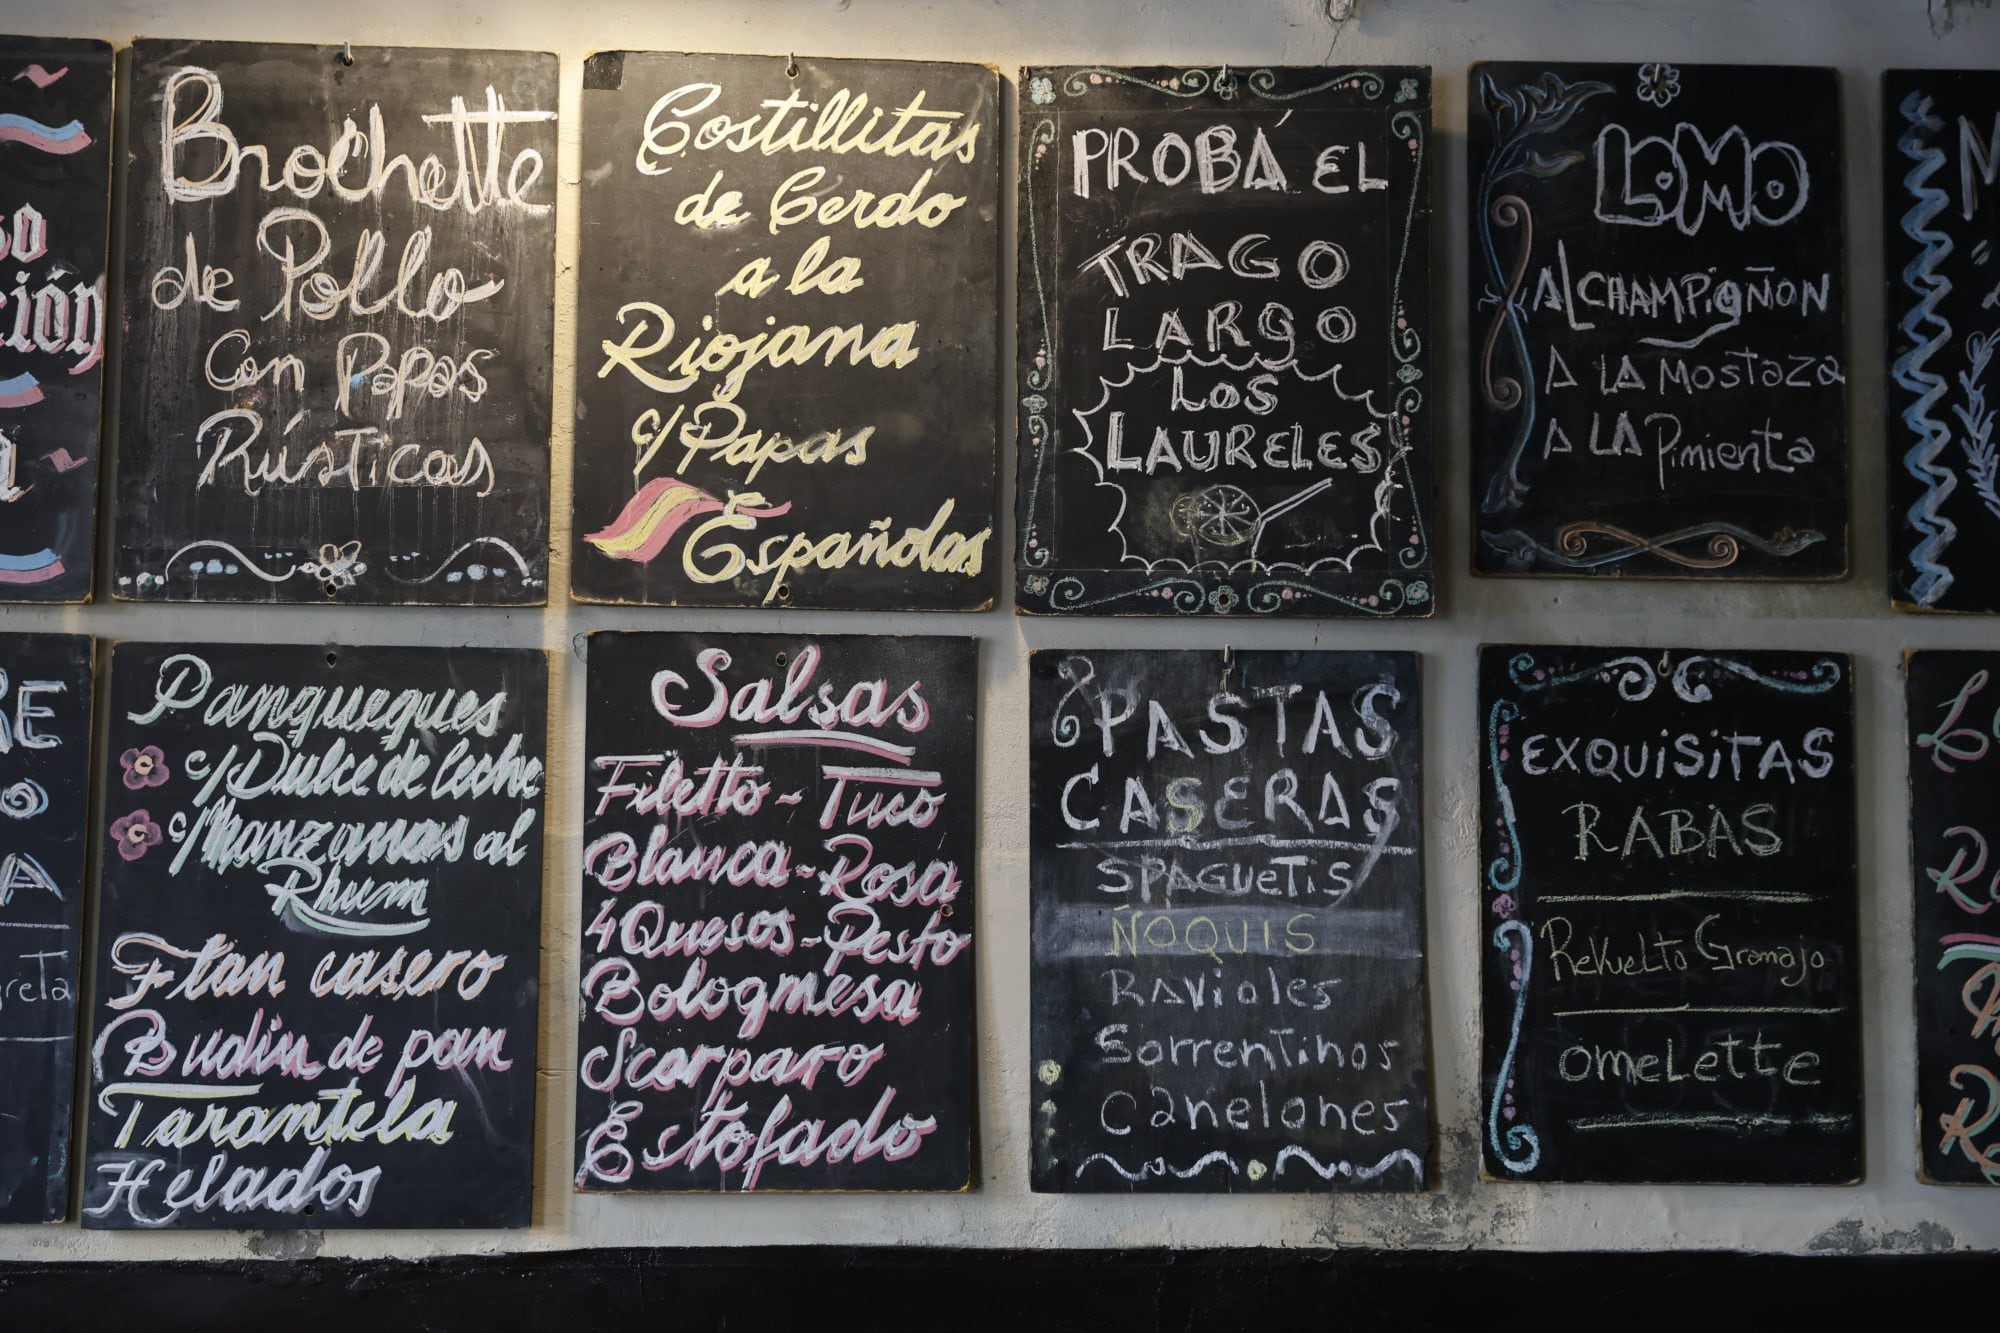 so
ción
a
Brochette
de Pollo
Con Papas
Rústicas
Costillitas
de Cerdo
a la
Riojana
c/Papas
Españolas
PROBÁ EL
TRAGO
LARGO
LOS
LAURELES
LOMO
AL CHAMPIGÑON
A LA MOSTAZA
A LA Pimienta
RE
O
A
reta
Panqueques
c/Dulce de leche
c/Manzanas al
Rhum
Flan casero
Budin de pan
Tarantela
Helados
Salsas
Filetto - Tuco
Blanca - Rosa
4 Quesos - Pesto
Bologmesa
Scarparo
Estofado
PASTAS
CASERAS
SPAGUETIS
ÑOQUIS
Ravioles
Sorrentinos
Canelones
EXQUISITAS
RABAS
Revuelto Gramajo
OMELETTE